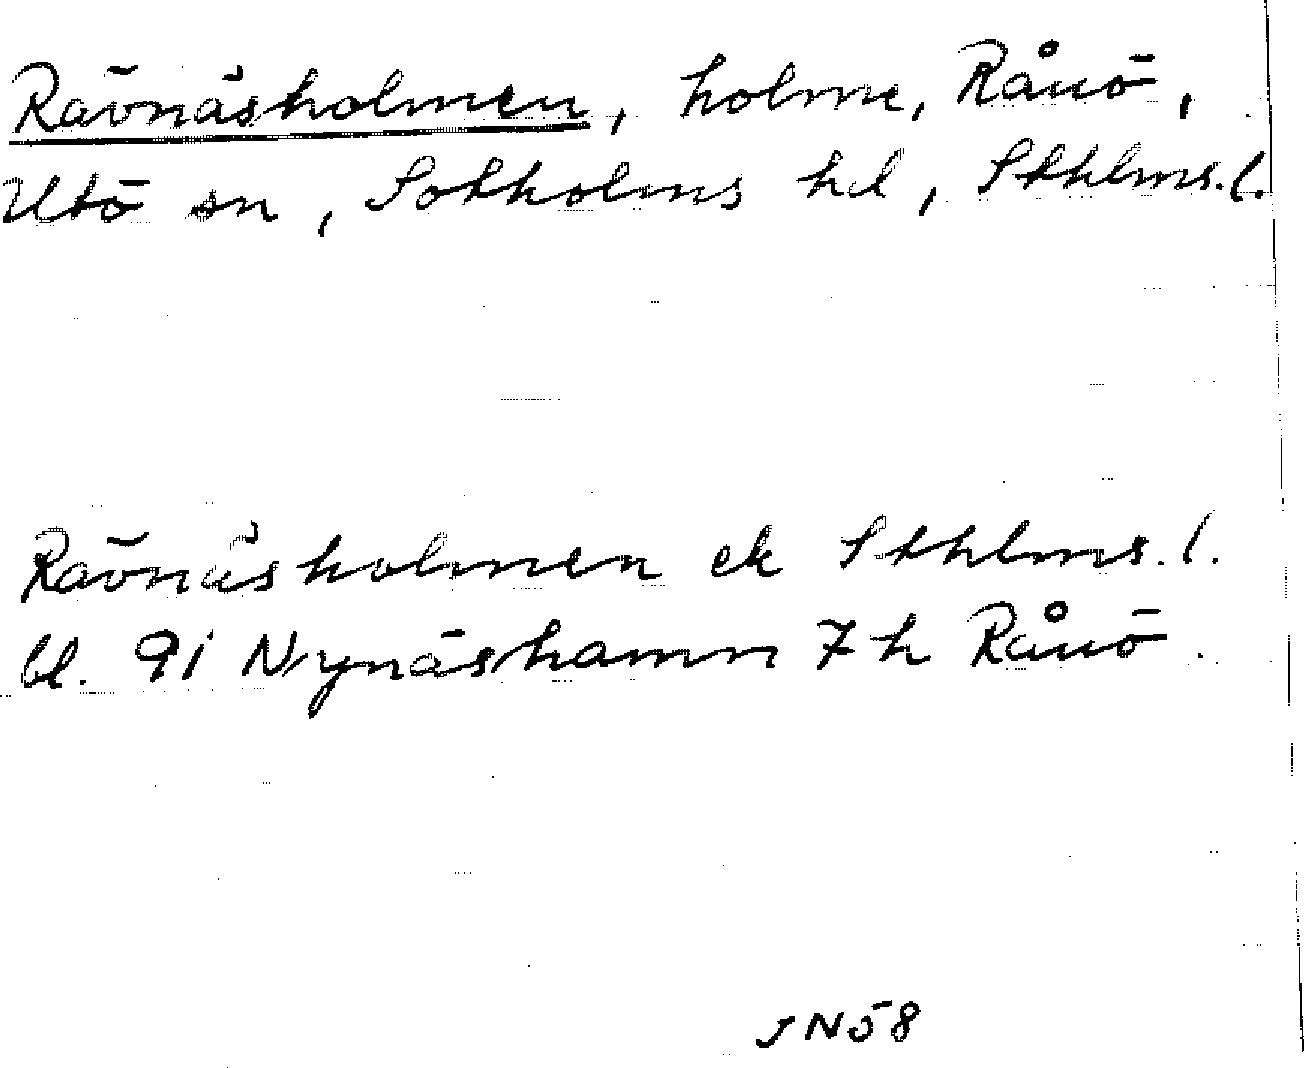 Rävnäsholmen, holme, Rånö,
Utö sn, Sotholms hd, Sthlms. l.
Rävnäsholmen ek Sthlms. l.
bl. 91 Nynäshamn 7h Rånö.
JN58